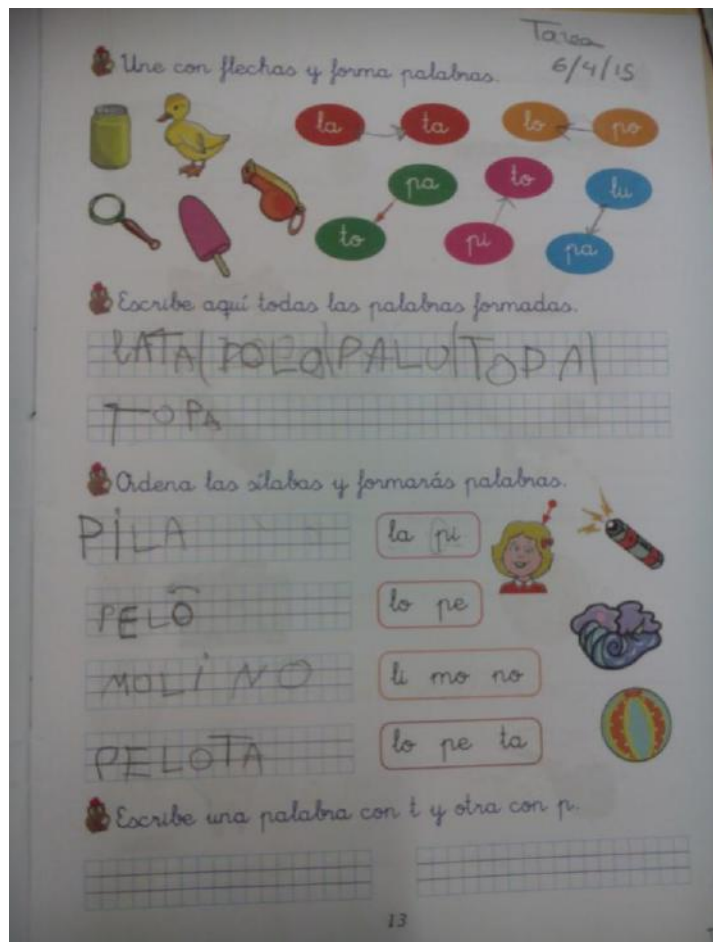 Tarea
6/4/15
Une con flechas y forma palabras.
la ta lo po
pa to lu
to pi pa
Escribe aquí todas las palabras formadas.
LATA POLO PALU TOPA
TOPA
Ordena las sílabas y formarás palabras.
PiLA la pi
PELO lo pe
MOLiNO li mo no
PELOTA lo pe ta
Escribe una palabra con t y otra con p.
13